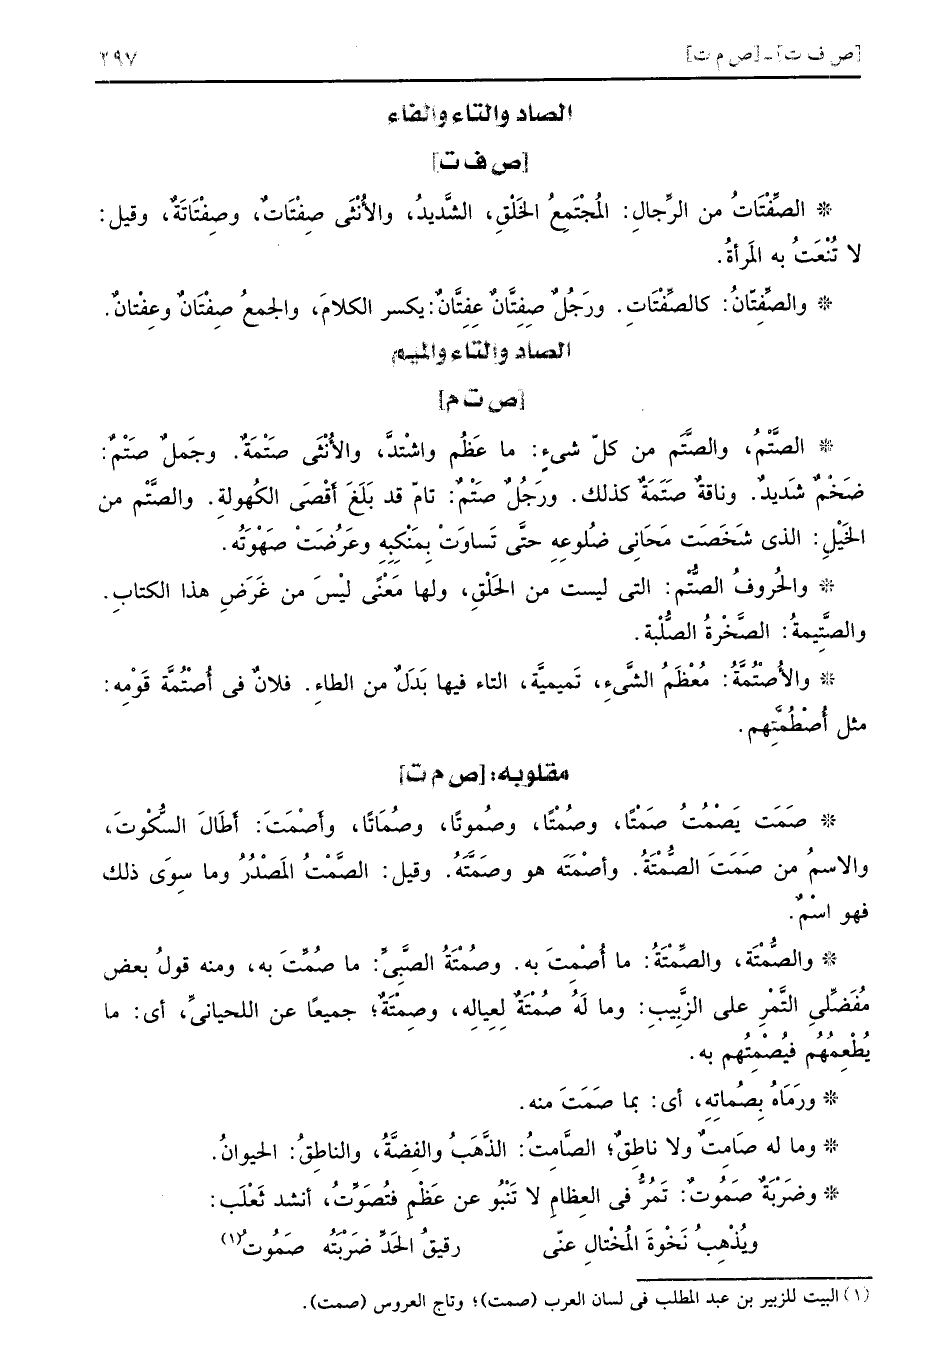 [ص ف ت] - [ص م ت]
٢٩٧
الصاد والتاء والفاء
[ص ف ت]
* الصِّفْتَاتُ من الرِّجالِ: المُجْتَمِعُ الخَلْقِ، الشَّديدُ، والأُنْثَى صِفْتَاتٌ، وصِفْتَاتَةٌ، وقيل:
لا تُنْعَتُ به المَرأةُ.
* والصِّفِتّانُ: كالصِّفْتَاتِ. ورَجُلٌ صِفِتَّانٌ عِفِتَّانٌ: يكسر الكلامَ، والجمعُ صِفْتَانٌ وعِفْتانٌ.
الصاد والتاء والميم
[ص ت م]
* الصَّتْمُ، والصَّتَم من كلّ شىءٍ: ما عَظُم واشْتدَّ، والأُنْثَى صَتْمَةٌ. وجَملٌ صَتْمٌ:
ضَخْمٌ شَديدٌ. وناقةٌ صَتَمَةٌ كذلك. ورَجُلٌ صَتْمٌ: تامّ قد بَلَغَ أَقْصَى الكُهولةِ. والصَّتْم من
الخَيْلِ: الذى شَخَصَت مَحَانِى ضُلوعِهِ حتَّى تَساوَتْ بِمَنْكِبِهِ وعَرُضَتْ صَهْوَتُه.
* والحُروفُ الصُّتْم: التى ليست من الحَلْقِ، ولها مَعْنًى ليْسَ من غَرَضِ هذا الكتابِ.
والصَّتِيمةُ: الصَّخْرةُ الصُّلْبة.
* والأُصْتُمَّةُ: مُعْظَمُ الشَّىءِ، تَميميَّة، التاء فيها بَدَلٌ من الطاء. فلانٌ فى أُصْتُمَّة قَوْمِه:
مثل أُصْطُمَّتِهم.
مقلوبه: [ص م ت]
* صَمَت يَصْمُتُ صَمْتًا، وصُمْتًا، وصُموتًا، وصُمَاتًا، وأصْمَتَ: أطَالَ السُّكُوتَ،
والاسمُ من صَمَتَ الصُّمْتَةُ. وأصْمَتَه هو وصَمَّتَهُ. وقيل: الصَّمْتُ المَصْدَرُ وما سِوَى ذلك
فهو اسْمٌ.
* والصُّمْتَة، والصِّمْتَةُ: ما أُصْمِتَ به. وصُمْتَةُ الصَّبِىِّ: ما صُمِّتَ به، ومنه قولُ بعض
مُفَضِّلى التَّمْرِ على الزَّبِيبِ: وما لَهُ صُمْتَةٌ لِعِيالِه، وصِمْتَةٌ؛ جميعًا عن اللحيانىِّ، أى: ما
يُطْعِمُهُم فيُصْمِتُهم به.
* ورَمَاهُ بِصُماتِهِ، أى: بما صَمَتَ منه.
* وما له صَامِتٌ ولا ناطِقٌ؛ الصَّامتُ: الذَّهَبُ والفِضَّةُ، والناطِقُ: الحَيوانُ.
* وضَرْبَةٌ صَمُوتٌ: تَمُرُّ فى العِظامِ لا تَنْبُو عن عَظْمٍ فتُصَوِّتُ، أنشد ثَعْلَب:
ويُذْهِبُ نَخْوةَ المُخْتالِ عنّى رقيقُ الحَدِّ ضَرْبَتُه صَمُوتُ(١)
(١) البيت للزبير بن عبد المطلب فى لسان العرب (صمت)؛ وتاج العروس (صمت).